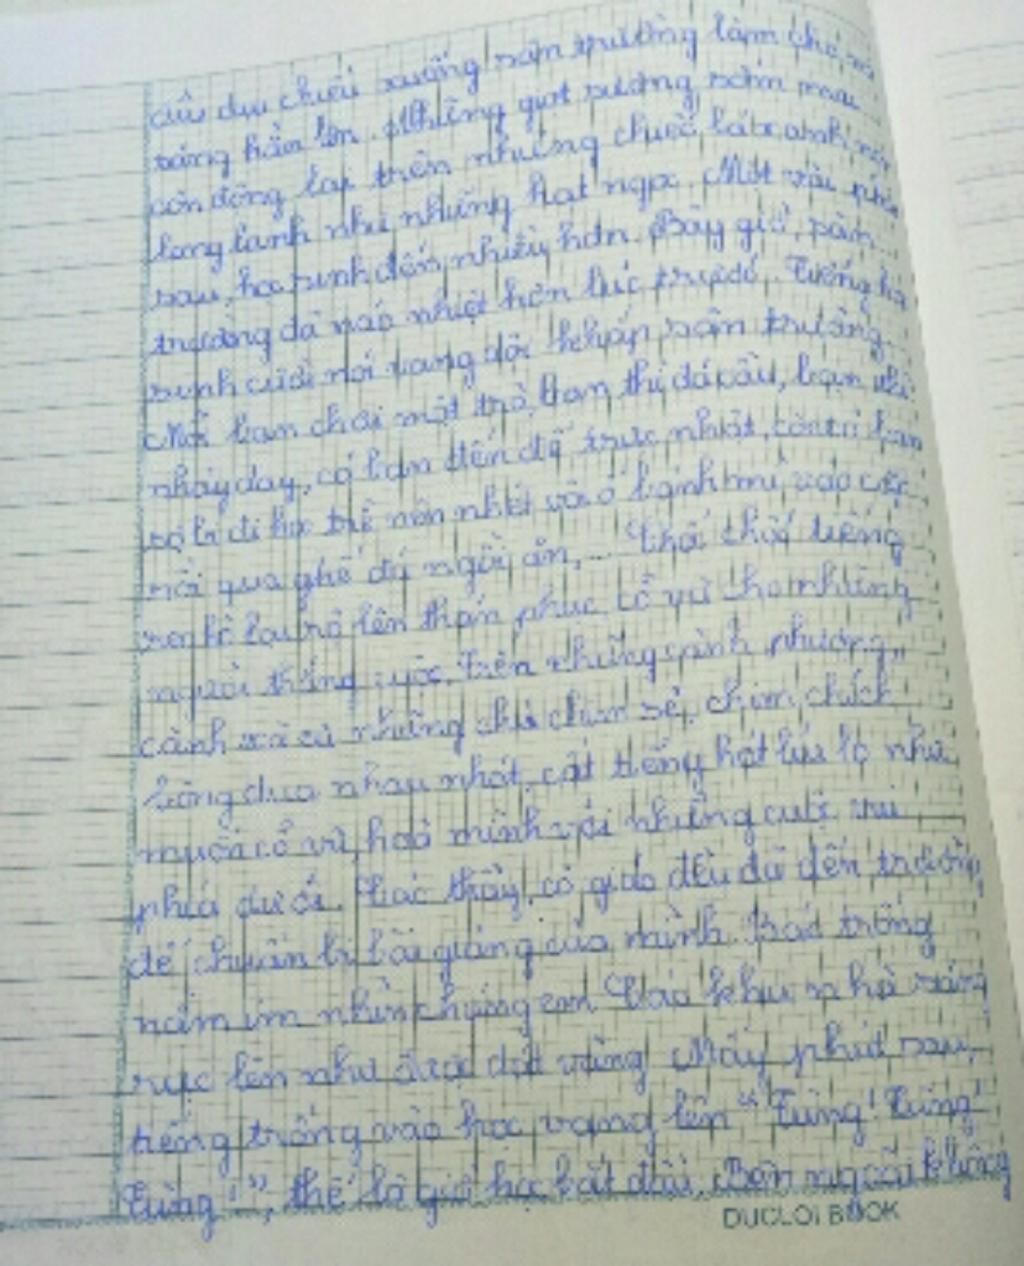 dịu dịu chiếu xuống sân trường làm cho
sáng hẳn lên. Những giọt sương sớm mai
còn đọng lại trên những chiếc lá bàng
long lanh như những hạt ngọc. Một vài phút
sau, học sinh đến nhiều hơn. Bây giờ, sân
trường đã náo nhiệt hơn lúc trước đó. Tiếng học
sinh cười nói vang dội khắp sân trường.
Mỗi bạn chơi một trò, bạn thì đá cầu, bạn thì
nhảy dây, có bạn đến để trực nhật, còn có bạn
sợ bị đi học trễ nên nhét vội ổ bánh mì vào cặp
rồi qua ghế đá ngồi ăn,... Thỉnh thoảng tiếng
reo hò lại rộ lên thán phục cổ vũ cho những
người thắng cuộc. Trên những cành phượng,
cành xà cừ những chú chim sẻ, chim chích
bông đua nhau nhót, cất tiếng hót líu lo như
muốn cổ vũ, hoà mình với những cuộc vui
phía dưới. Các thầy, cô giáo đều đã đến trường
để chuẩn bị bài giảng của mình. Bác trống
nằm im nhìn chúng em. Các khu nhà sáng
rực lên như được dát vàng. Mấy phút sau,
tiếng trống vào học vang lên "Tùng! Tùng!
Tùng!", thế là giờ học bắt đầu. Bên ngoài không
DUCLOI BOOK